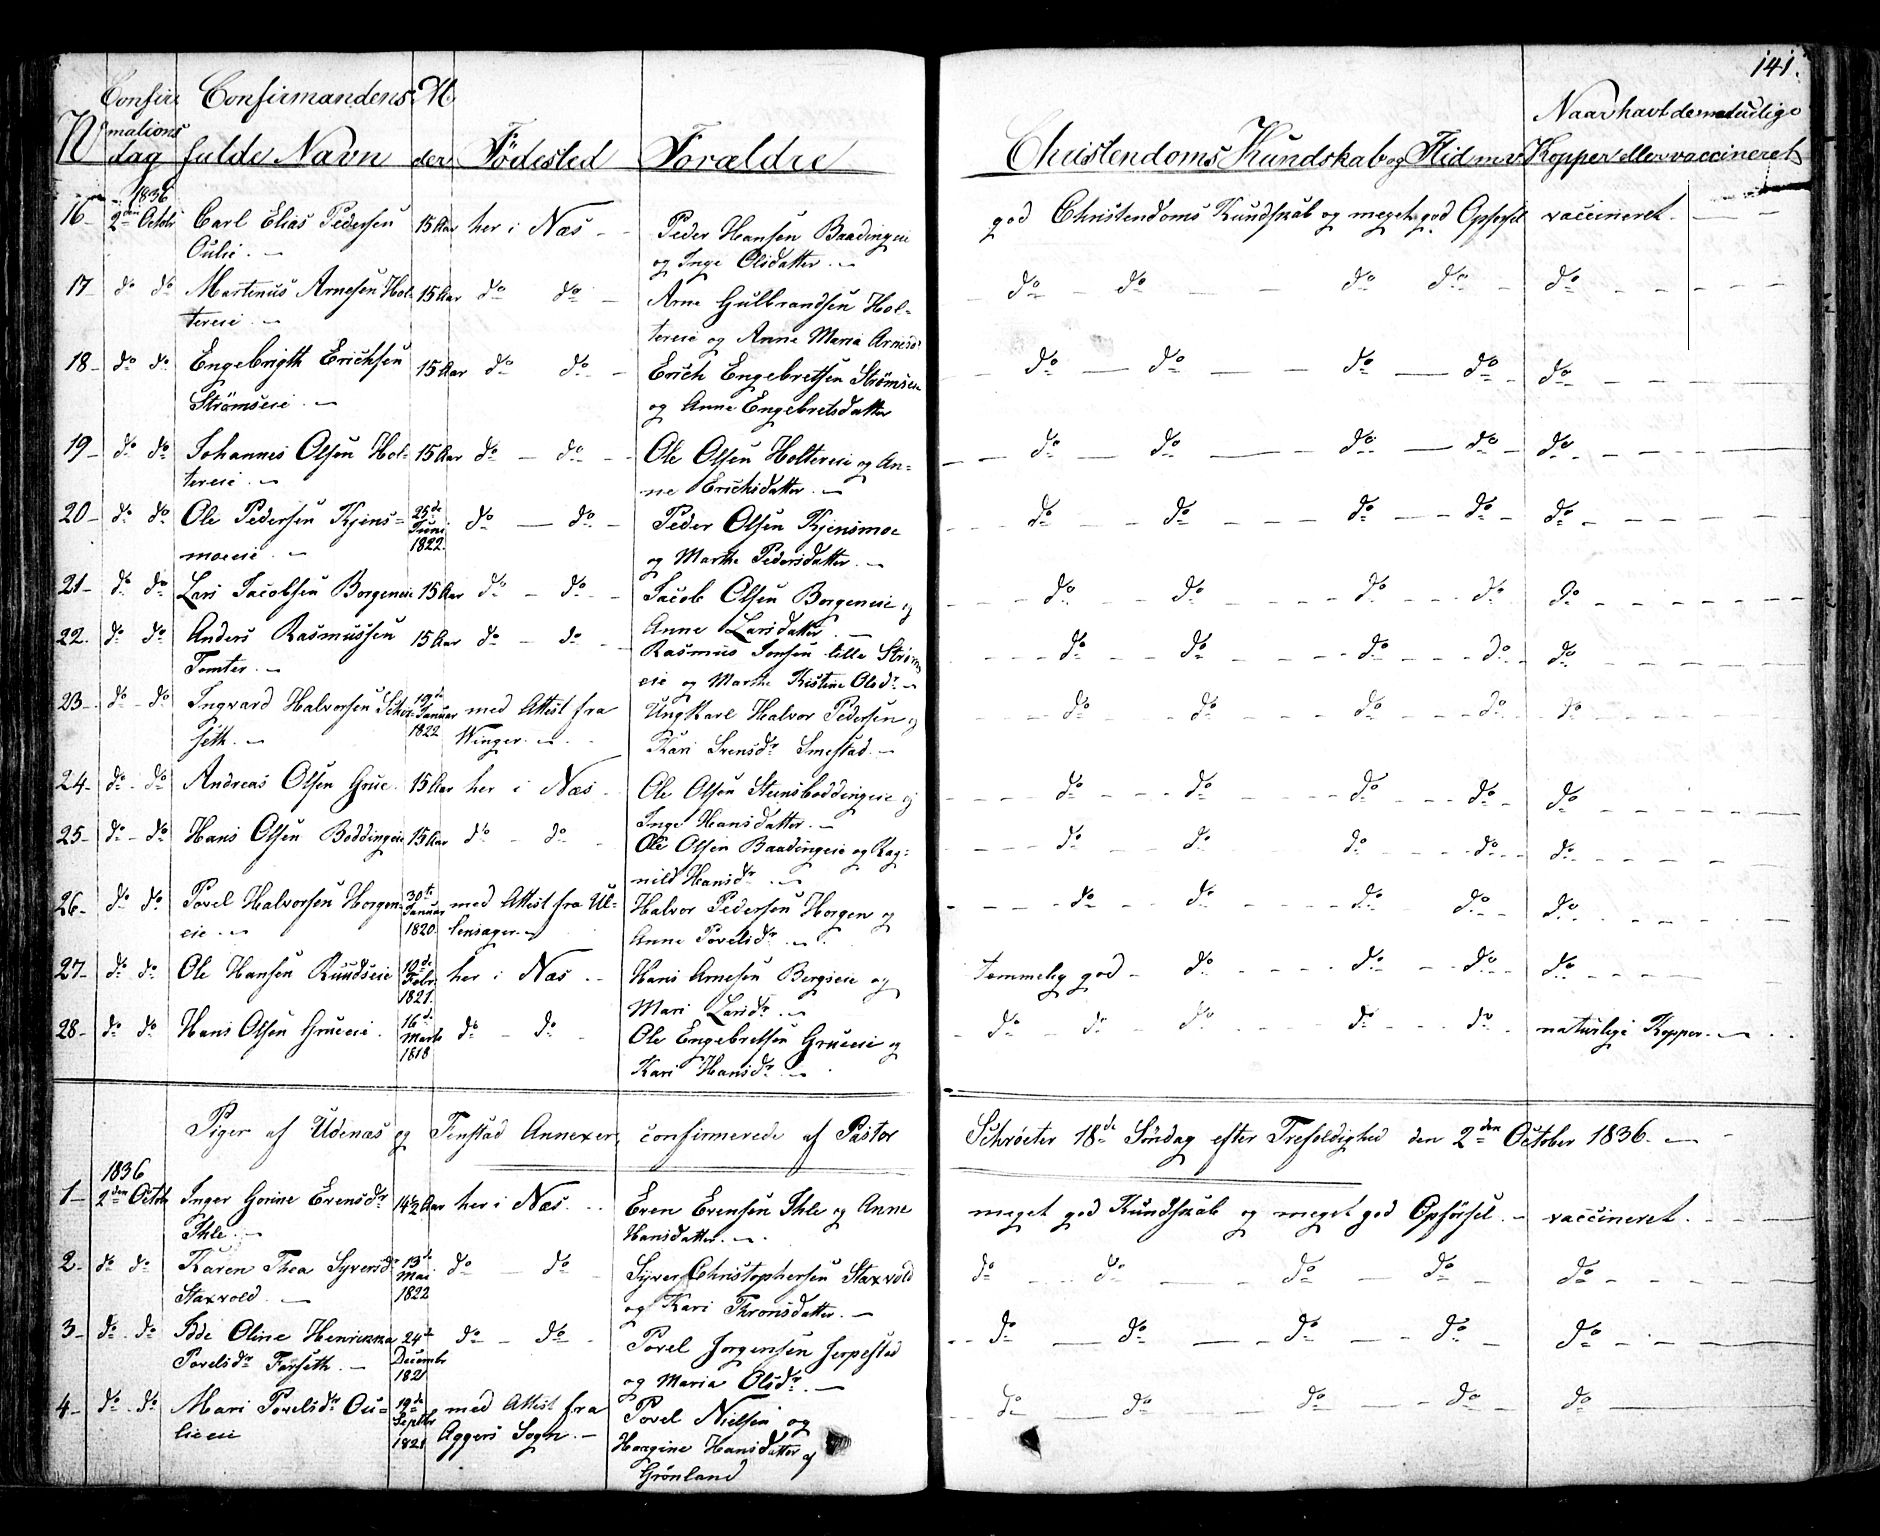 141.
Confir Confirmandens Al
Naar havt de naturlige
No mations
dag fulde Navn der Födested Forældre Christendoms Kundskab og Flid m. v. Kopper eller vaccineret
1836
16 - 2den Octob Carl Elias Pedersen 15 Aar her i Næs - Peder Hansen Baadingeie god Christendoms Kundskab og meget god Opførsel vaccineret. - -
Oulie. - og Inge Olsdatter. -
17 - do do Martinus Arnesen Hol- 15 Aar do do - Arne Gulbrandsen Hol- do - do - - do do - do - - -
tereie. - tereie og Anne Maria Arnesdr
18 - do do Engebrigth Erichsen 15 Aar do do - Erich Engebretsen Strömseie - do - do - - do - do - do - - -
Strömseie. - og Anne Engebretsdatter
19 - do do Johannes Olsen Hol- 15 Aar do - do - Ole Olsen Holtereie og An- - - do do - do - do - do - - -
tereie. - ne Erichsdatter. -
20 - do do Ole Pedersen Kjens- 25de Juni 1822. do - do - Peder Olsen Kjensmoe - - do - do - - do - - do - do - - -
moeeie. - og Marthe Pedersdatter. -
21 - do do Lars Jacobsen Borgeneie 15 Aar do - do - Jacob Olsen Borgeneie og - - do - - do - - do - - do - do - - -
Anne Larsdatter -
22. do do Anders Rasmussen 15 Aar do - do - Rasmus Jonsen lille Ström - - do - - do - - do - - do - do - - -
Tomter. - eie og Marthe Kistine Olsdr -
23 - do - do Ingvard Halvorsen 19de Januar 1822 med Attest fra Ungkarl Halvor Pedersen og - - do - - do - - do - - do - do - - -
seth. - Winger. - Kari Svensdr Smestad. -
24 - do - do Andreas Olsen Grue. 15 Aar her i Næs - Ole Olsen Steensboddingeie og - - do - - do - - do - - do - do - - -
Inge Hansdatter. -
25 - do - do Hans Olsen Boddingeie 15 Aar do - do - Ole Olsen Baadingeie og Rag- - - do - - do do - - do - do - - -
nild Hansdr -
26 - do do Povel Halvorsen Horgen 30te Januar 1820. med Attest fra Ul- Halvor Pedersen Horgen og - - do - - do - - do - - do - do - - -
eie - lensager. - Anne Povelsdr -
27 - do do Ole Hansen Rundseie 10de Febr 1821. her i Næs - Hans Arnesen Bergseie og temmelig god - do - - do - - do - do - - -
Mari Larsdr -
28 - do do Hans Olsen Grueeie. 16de Marts 1818 do - do - Ole Engebretsen Grueeie og - do - do - do - - do - - do - naturlige Kopper. -
Kari Hansdr -
Piger af Udenæs og Fenstad Annexer, confirmerede af Pastor Schrøeter 18de Söndag efter Trefoldighed den 2den October 1836. -
1836
1 - 2den Octob Inger Gorine Evensdr 14½ Aar her i Næs. - Even Evensen Ihle og Anne meget god Kundskab og meget god Opförsel. - vaccineret. - -
Ihle. - Hansdatter. -
2 - do do Karen Thea Syversdr 13de Mai 1822 do - do - Syver Christophersen Staxvold do - - do - - do - - do - do - - -
Staxvold. - og Kari Thronsdatter. -
3 - do - do Ode Oline Henrikka 24de Decembr 1821 do - do - Povel Jorgensen Jerpestad - - do - do - - do - - do - do - - -
Povelsdr Farseth. - og Maria Olsdr. -
4 - do - do Mari Povelsdr Ou- 19de Septbr 1821 med Attest fra Povel Nielsen og - - do - do - - do - - do - do - - -
lieeie Aggers Sogn. - Horgine Hansdatter af
Grönland